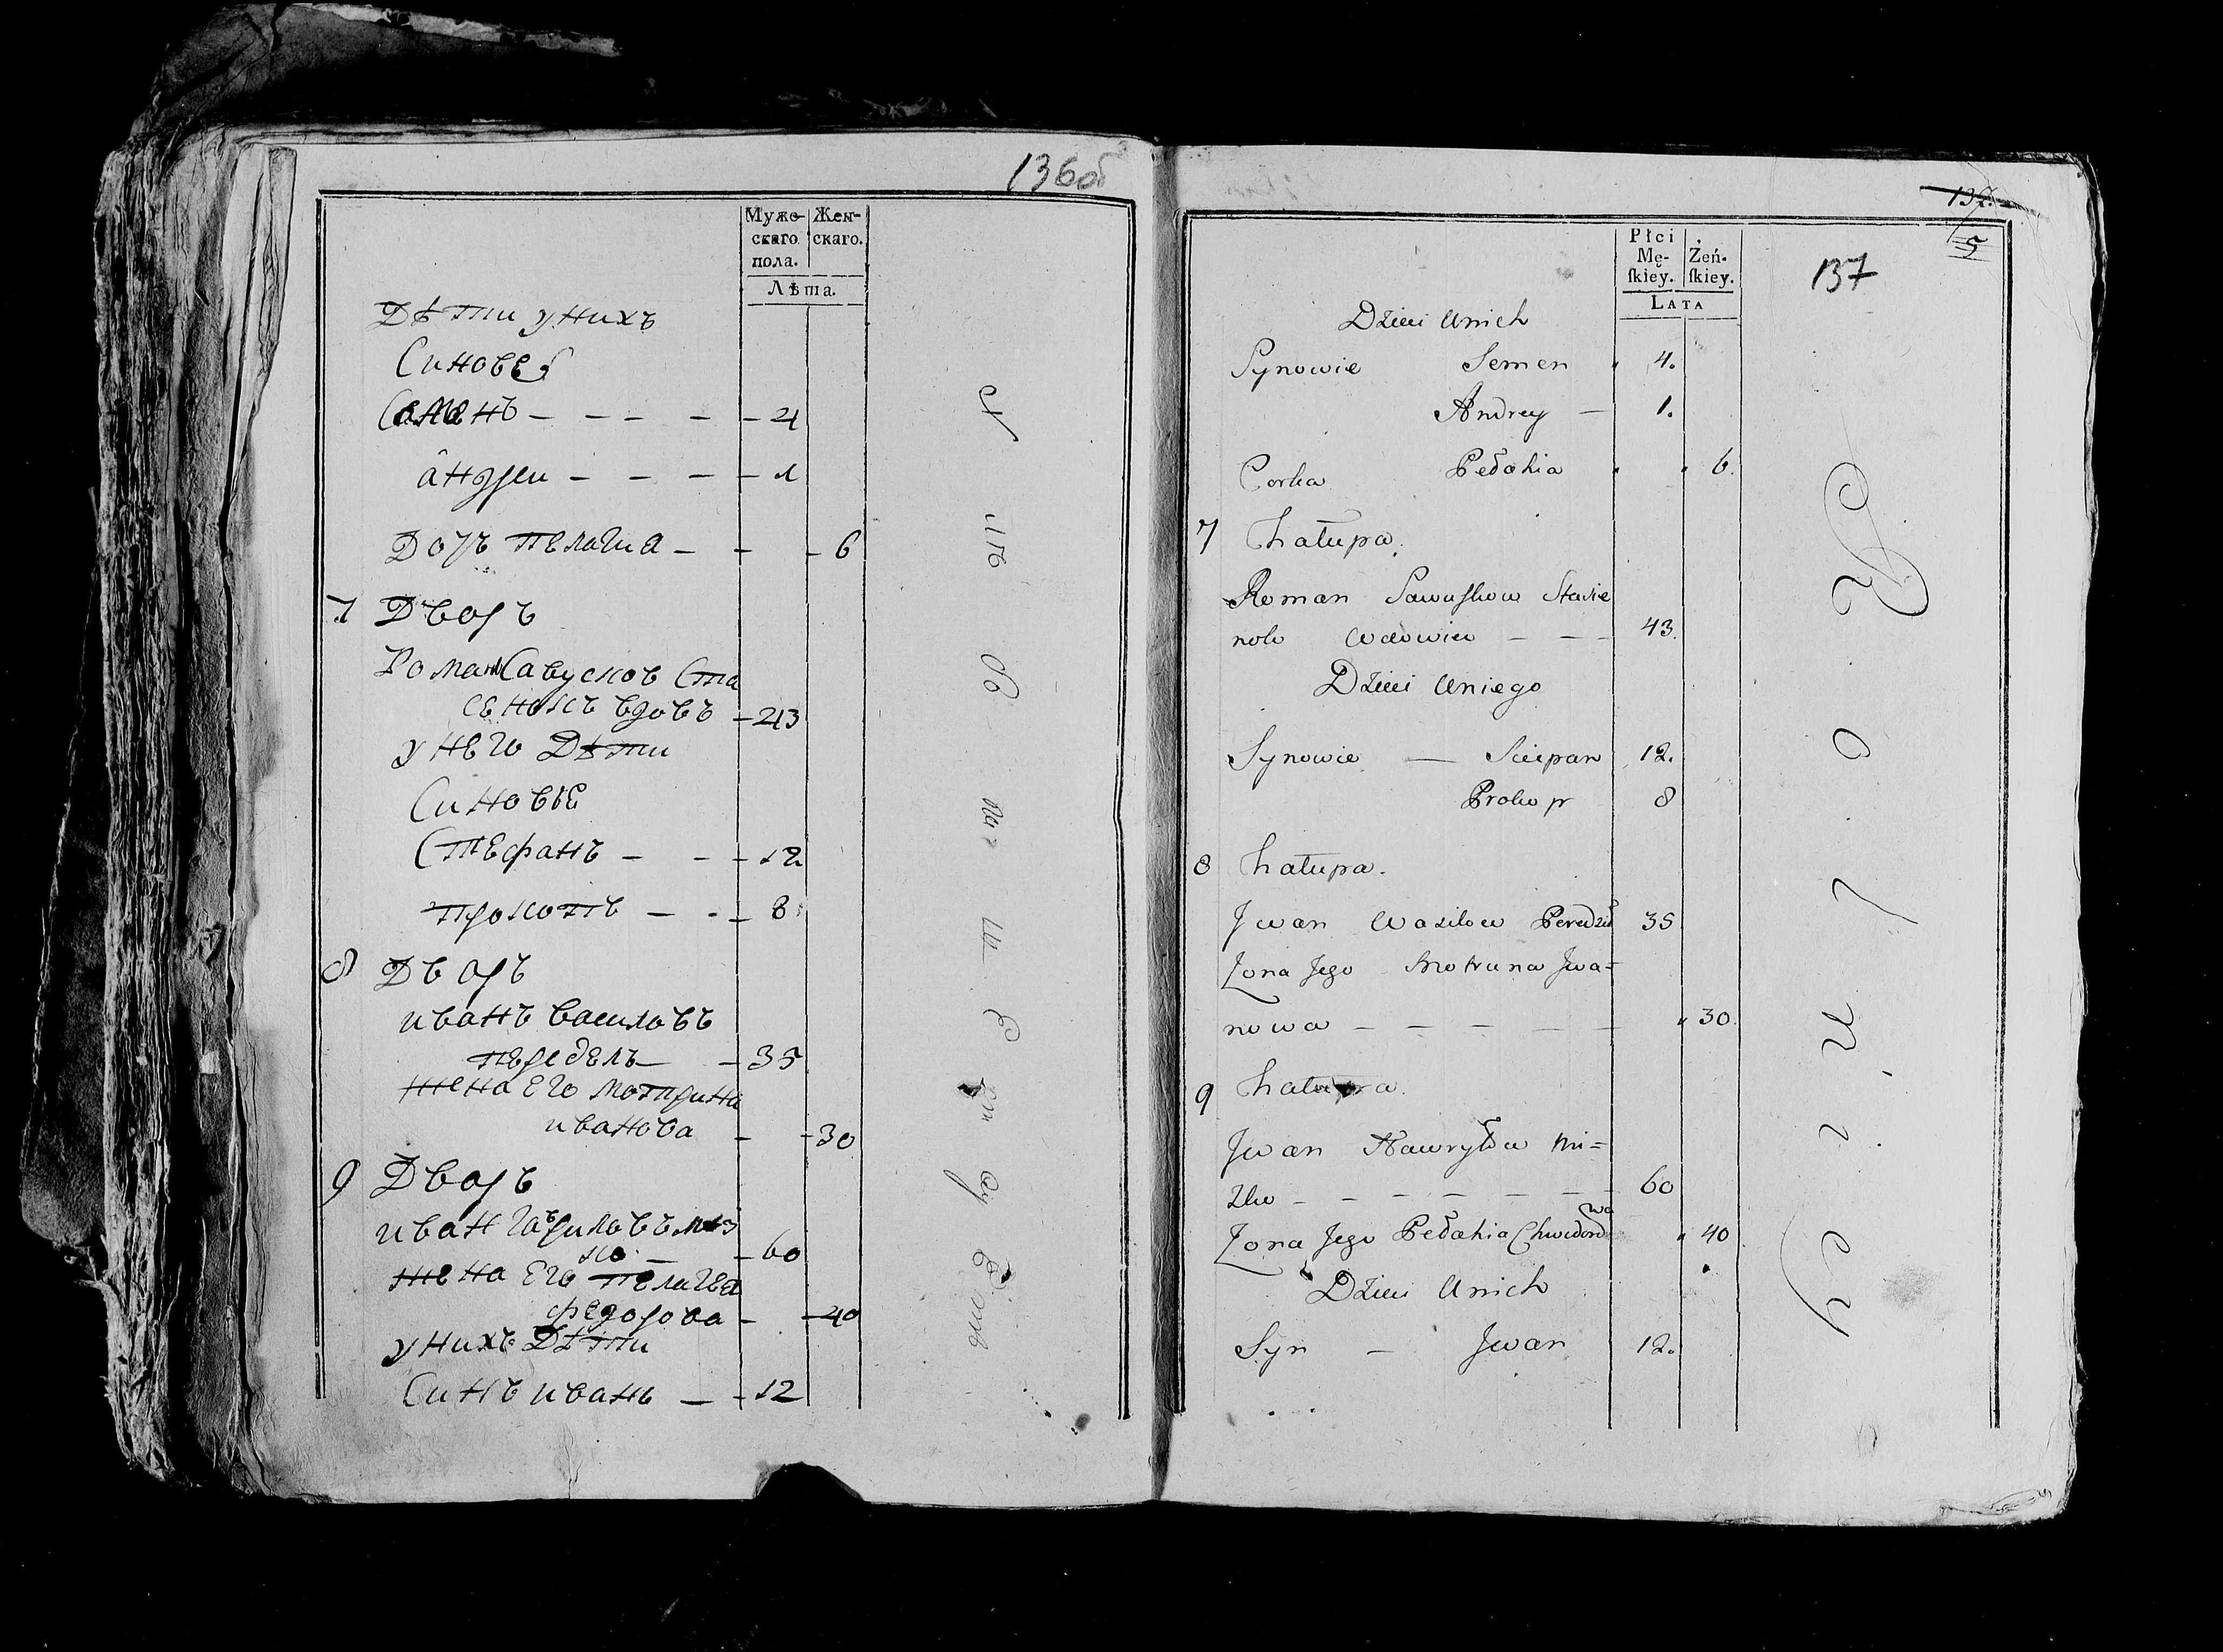 136об
Муже-
скаго
пола.
Жен-
скаго.
Лѣта.
Дѣти унихъ
Синове
Семенъ — — — — 4
андреи — — — — 1
Дочъ пелагиа — — — 6
7 Дворъ
Романъ Савусковъ Ста
сенокъ вдовъ — 43
унего Дѣти
Синовьѣ
Стефанъ — — — 12
прокопъ — — — 8
8 Дворъ
иванъ василовъ
передель — — 35
жена Его мотрина
иванова — — 30
9 Дворъ
иван гаврриловъ миз
ко — — 60
жена Его пелагеа
федорова — — 40
унихъ Дѣти
Синъ иванъ — — 12
137
5
137
Płci
Mę-
ſkiey.
Żeń-
ſkiey.
LATA
Dzieci Unich
Synowie Semen 4.
Andrey — 1.
Corka Pełahia 6.
7 Chałupa.
Roman Sawuskow Stasie
nok Wdowiec — — — 43.
Dzieci Uniego
Synowie — Sciepan 12.
Prokop 8
8 Chałupa.
Jwan Wasilow Peredził 35
Zona Jego Motruna Jwa=
nowa — — — — — 30.
9 Chałupa.
Jwan Hawryłow Mi=
zko — — — — — — 60
Zona Jego Pełahia Chwedoro
wa 40
Dzieci Unich
Syn — Jwan 12.